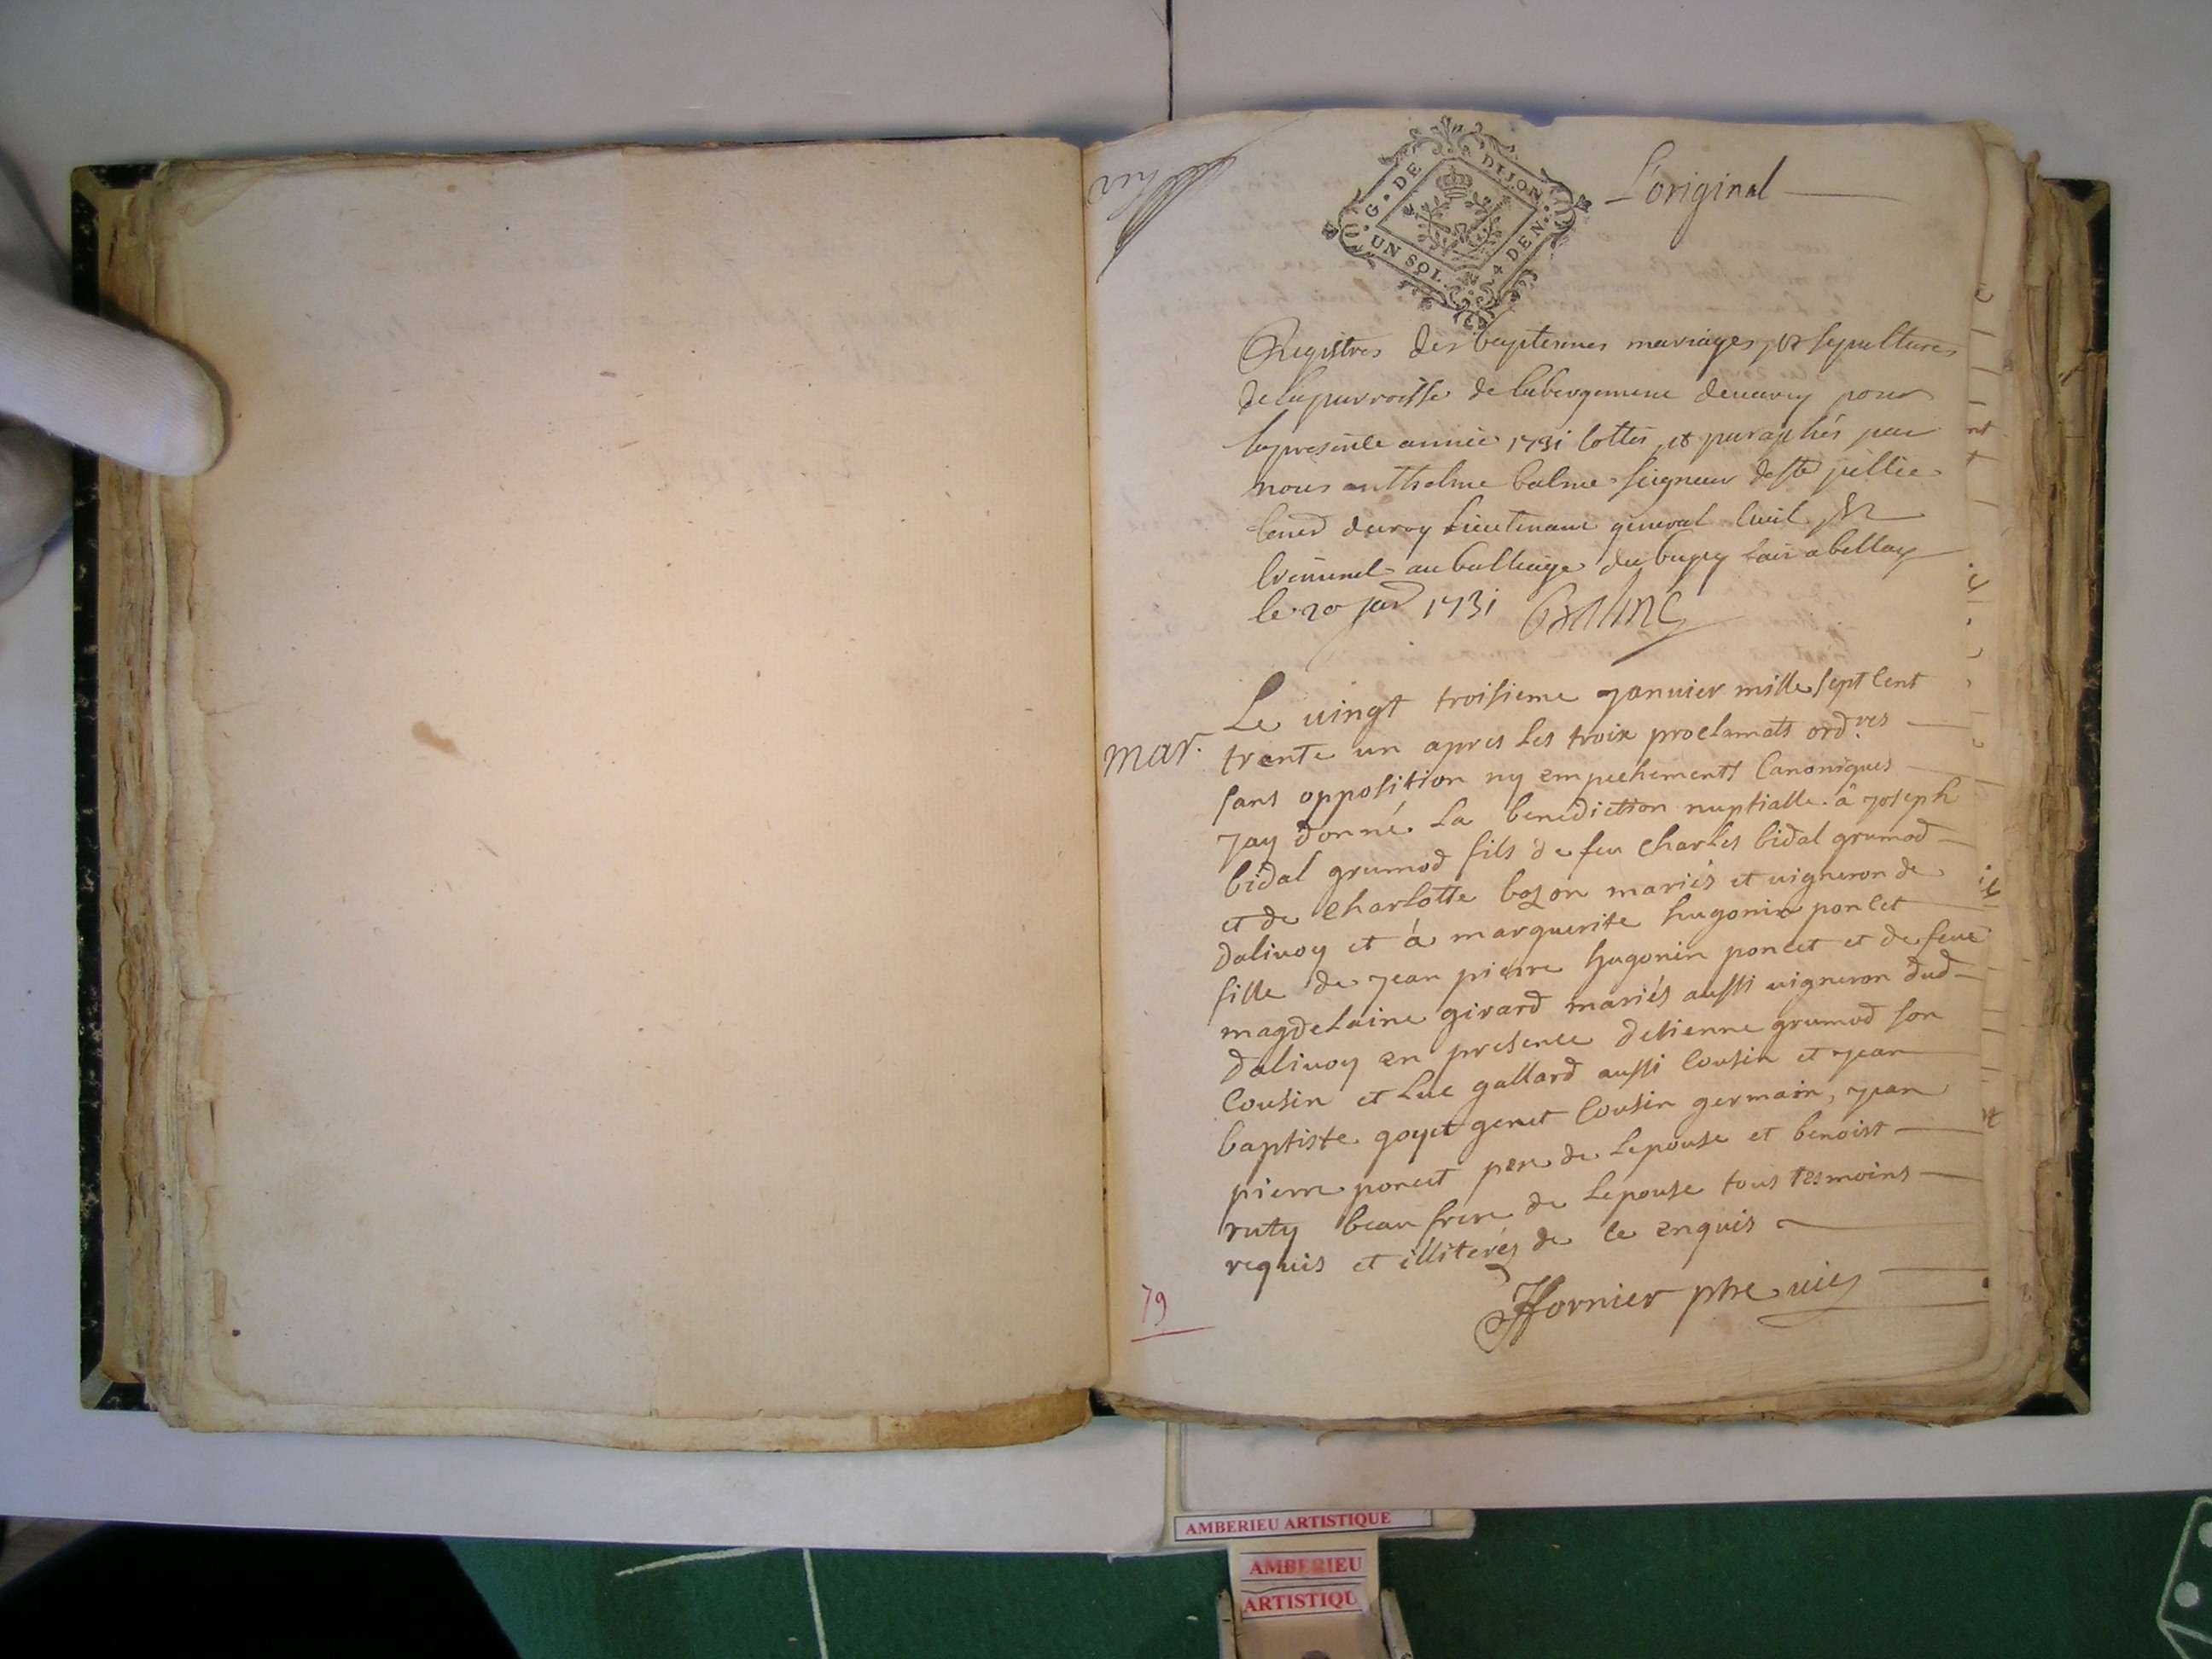 L'original
G. DE DIJON
UN SOL 4 DEN.
Registres des baptesmes mariages, et sepultures
de la parroisse de labergement de uarey pour
la presente année 1731 cottés et paraphés par
nous anthelme balme seigneur de ste jullie
coner du roy Lieutenant general ciuil et
criminel au bailliage du bugey a bellay
le 20 jar 1731 Balme
Le uingt troisieme janvier mille sept cent
mar.
trente un apres les troix proclamats ord.res
sans opposition ny empechements canoniques
jay donné la benediction nuptialle â joseph
bidal grumod fils de feu charles bidal grumod
et de charlotte bozon mariés et uigneron de
dalivoy et à marguerite hugonin poncet
fille de jean pierre hugonin poncet et de feue
magdelaine girard mariés aussi uigneron dud
dalivoy en presence detienne grumod son
cousin et luc gallard aussi cousin et jean
baptiste goyet genet cousin germain, jean
pierre poncet pere de lepouse et benoist
ruty beau frere de lepouse tous tesmoins
requis et illiterés de ce enquis
ffornier ptre uic
79
AMBERIEU ARTISTIQUE
AMBERIEU
ARTISTIQU